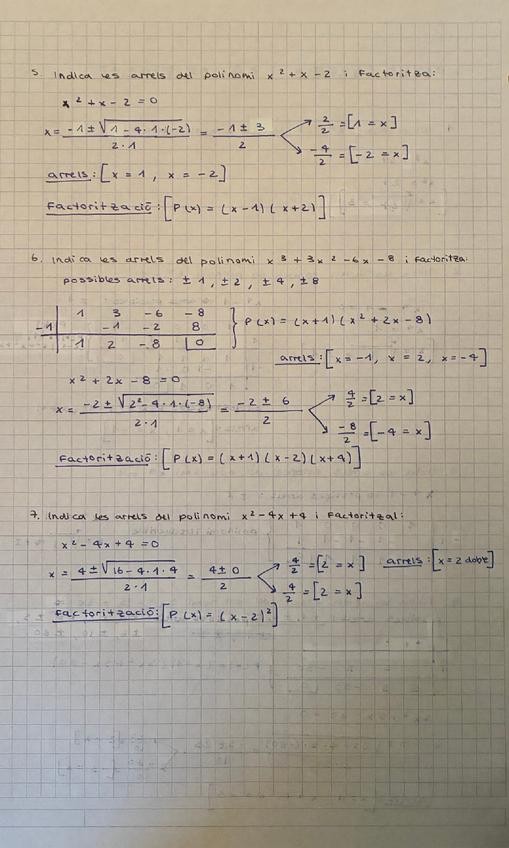 5. Indica les arrels del polinomi x² + x - 2 i factoritza:
x² + x - 2 = 0
x = (-1 ± √(1 - 4·1·(-2))) / (2·1) = (-1 ± 3) / 2
2/2 = [1 = x]
-4/2 = [-2 = x]
arrels: [x = 1, x = -2]
Factorització: [P(x) = (x-1)(x+2)]
6. Indica les arrels del polinomi x³ + 3x² - 6x - 8 i factoritza:
possibles arrels: ±1, ±2, ±4, ±8
1 3 -6 -8
-1 -1 -2 8
1 2 -8 0
P(x) = (x+1)(x² + 2x - 8)
arrels: [x = -1, x = 2, x = -4]
x² + 2x - 8 = 0
x = (-2 ± √(2² - 4·1·(-8))) / (2·1) = (-2 ± 6) / 2
4/2 = [2 = x]
-8/2 = [-4 = x]
Factorització: [P(x) = (x+1)(x-2)(x+4)]
7. Indica les arrels del polinomi x² - 4x + 4 i factoritzal:
x² - 4x + 4 = 0
x = (4 ± √(16 - 4·1·4)) / (2·1) = (4 ± 0) / 2
4/2 = [2 = x]
4/2 = [2 = x]
arrels: [x = 2 doble]
Factorització: [P(x) = (x-2)²]